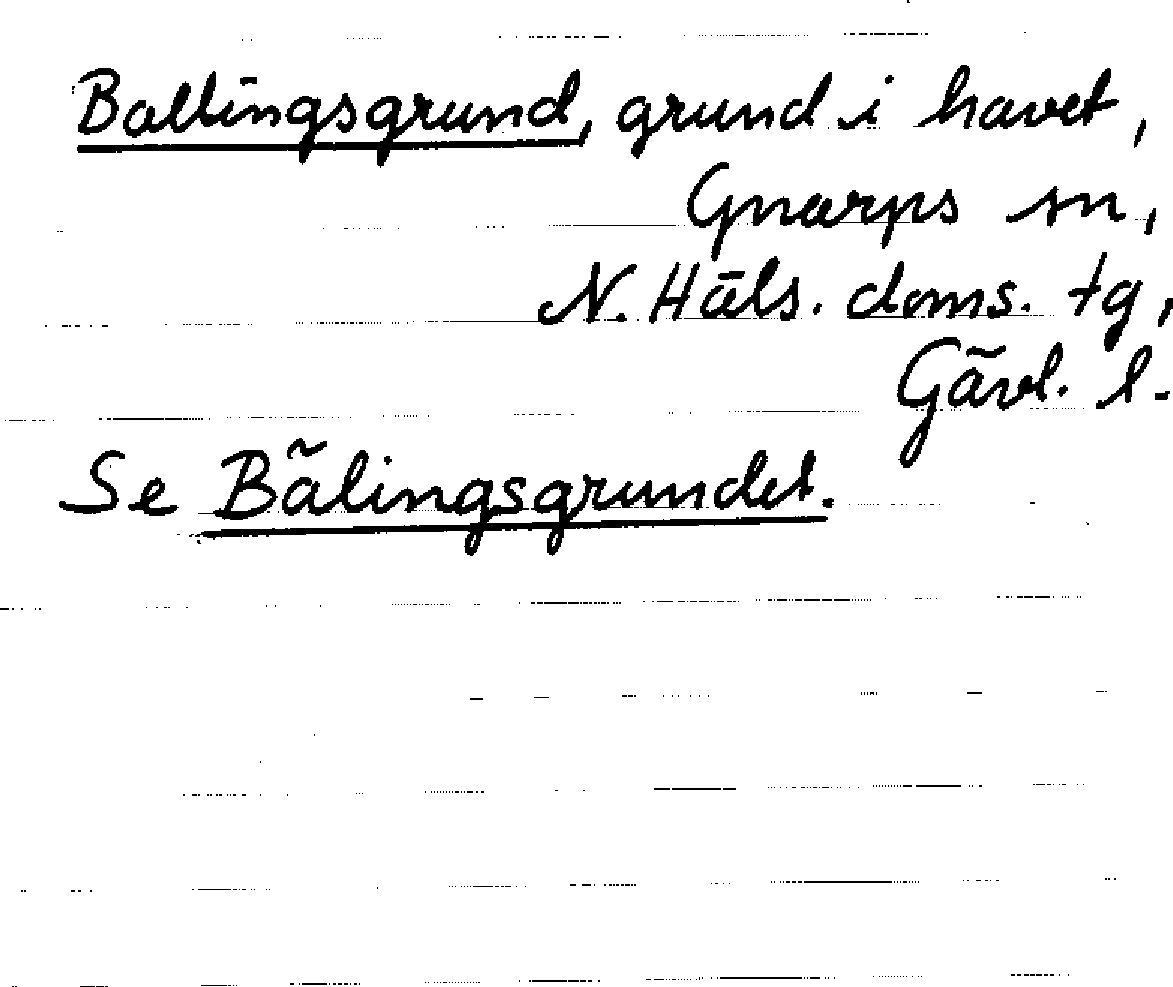 Ballingsgrund, grund i havet,
Gnarps sn,
N. Häls. doms. tg,
Gävl. l.
Se Bälingsgrundet.